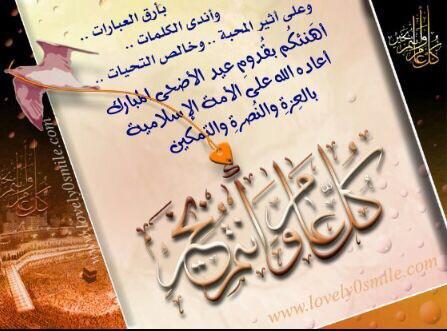 بأرق العبارات ..
وأندى الكلمات ..
وعلى أثير المحبة .. وخالص التحيات ..
اهنئكم بقدوم عيد الأضحى المبارك
أعاده الله على الأمة الإسلامية
بالعزة والنصرة والتمكين
كل عام وأنتم بخير
www.lovely0smile.com
www.lovely0smile.com
كل عام وأنتم بخير
كل عام وأنتم بخير